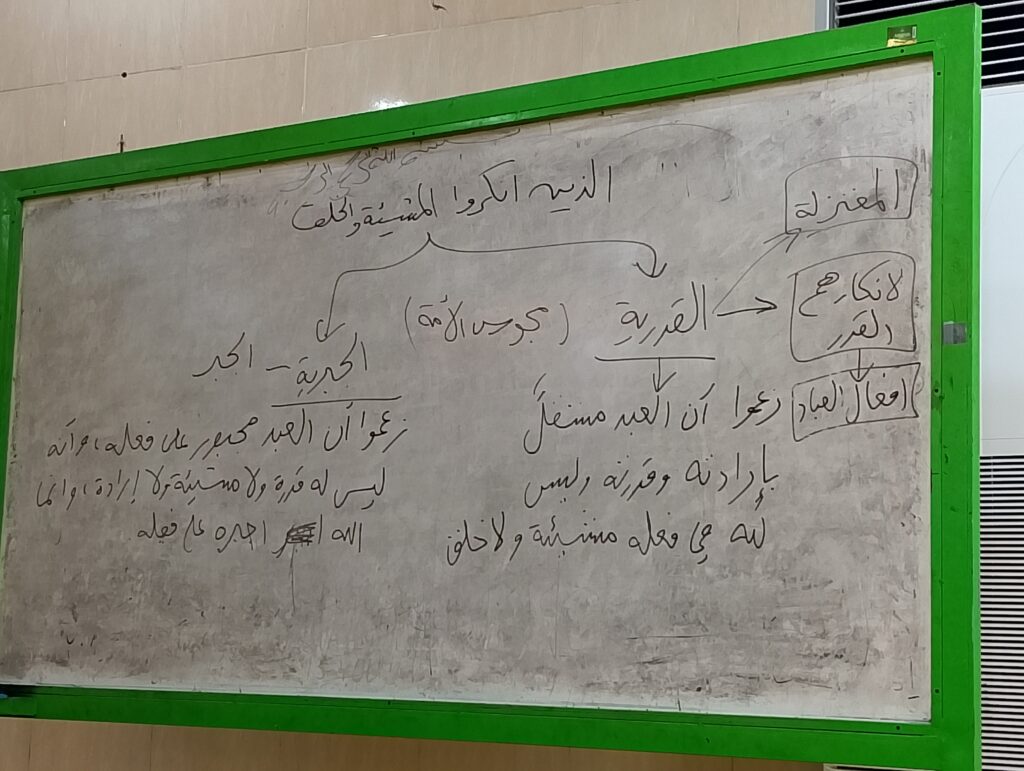 الذين انكروا المشيئة والخلق
المعتزلة
القدرية (مجوس الأمة)
لانكارهم
القدر
افعال العباد
زعموا أن العبد مستقل
بإرادته وقدرته وليس
لله في فعله مشيئة ولا خلق
الجبرية - الجبر
زعموا أن العبد مجبور على فعله، وأنه
ليس له قدرة ولا مشيئة ولا إرادة، وانما
الله اجبره على فعله